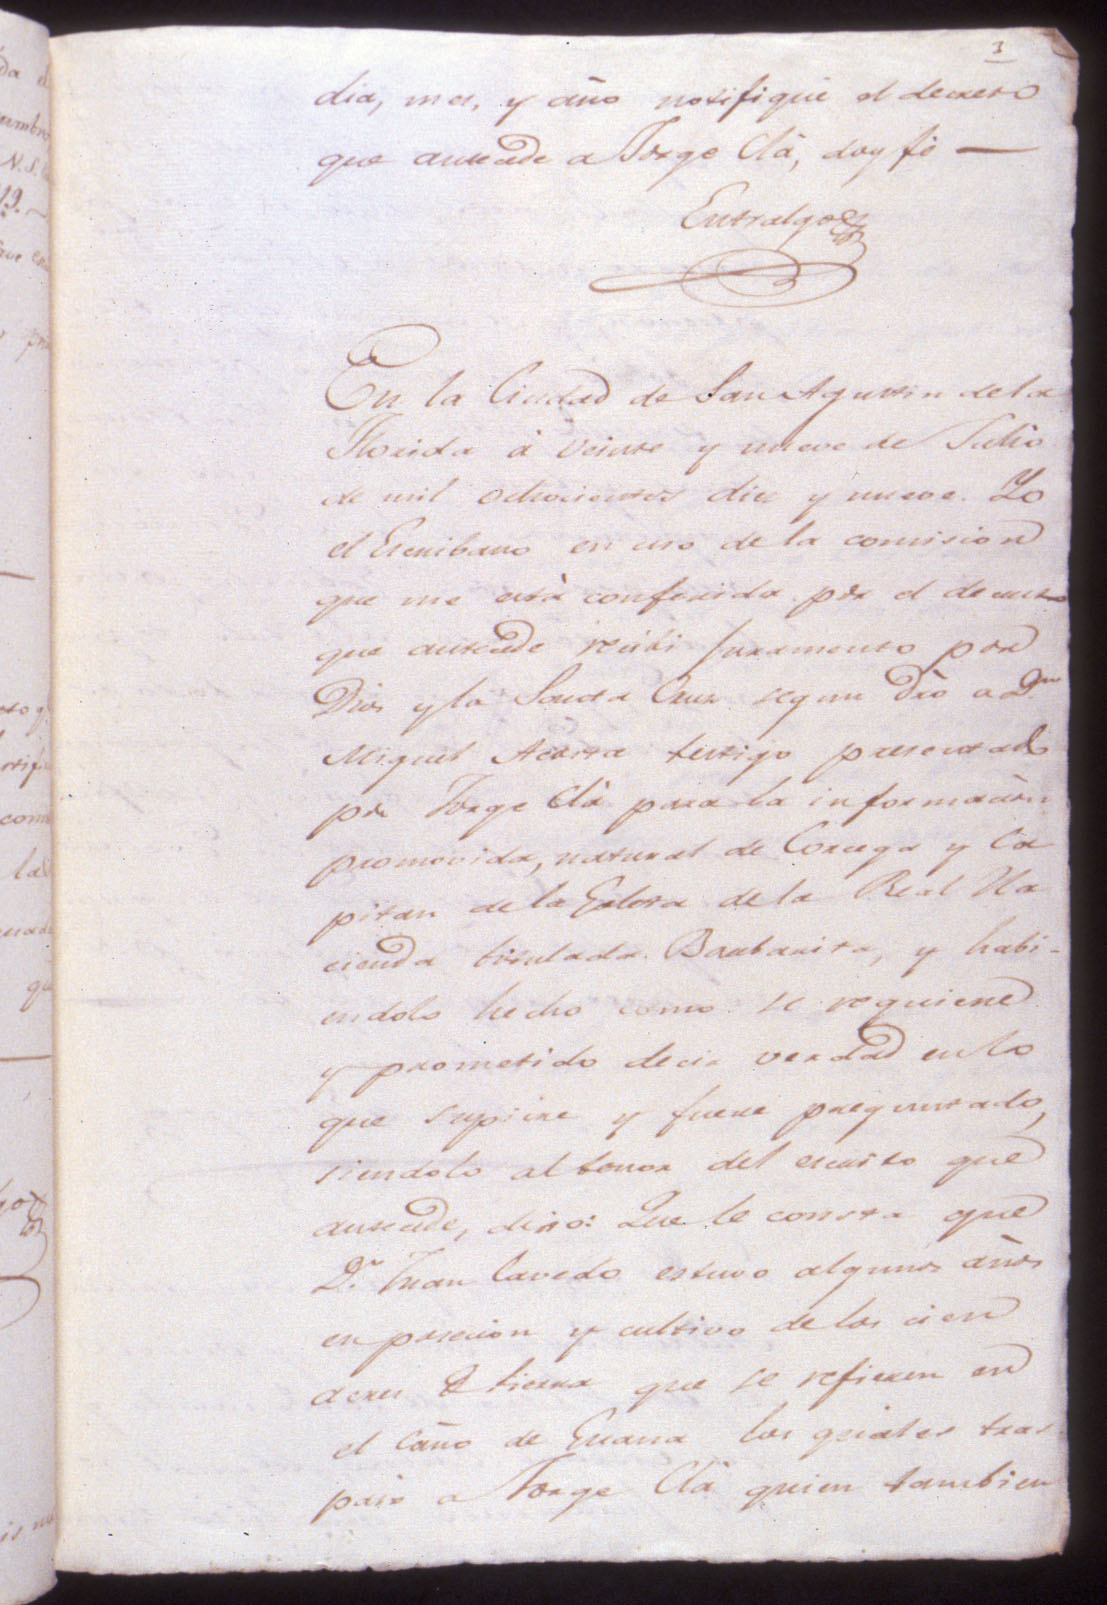 3
dia, mes, y año notifiqué el decreto
que antecede a Jorge Clà, doy fé
Entralgo
En la Ciudad de San Agustin de la
Florida á veinte y nueve de Julio
de mil ochocientos diez y nueve. Yo
el Escribano en uso de la comision
que me està conferida por el decreto
que antecede recibi juramento por
Dios y la Santa Cruz segun dro a Dn
Miguel Acosta testigo presentado
por Jorge Clà para la informacion
promovida, natural de Corcega y Ca
pitan de la Goleta de la Real Ha
cienda titulada Barbarita, y habi-
endolo hecho como se requiere
y prometido decir verdad en lo
que supiere y fuere preguntado,
siendolo al tenor del escrito que
antecede, dixo: Que le consta que
Dn. Juan Cavedo estuvo algunos años
en posecion y cultivo de los cien
acres de tierra que se refieren en
el Caño de Guana los quales tras
paso a Jorge Clà quien tambien